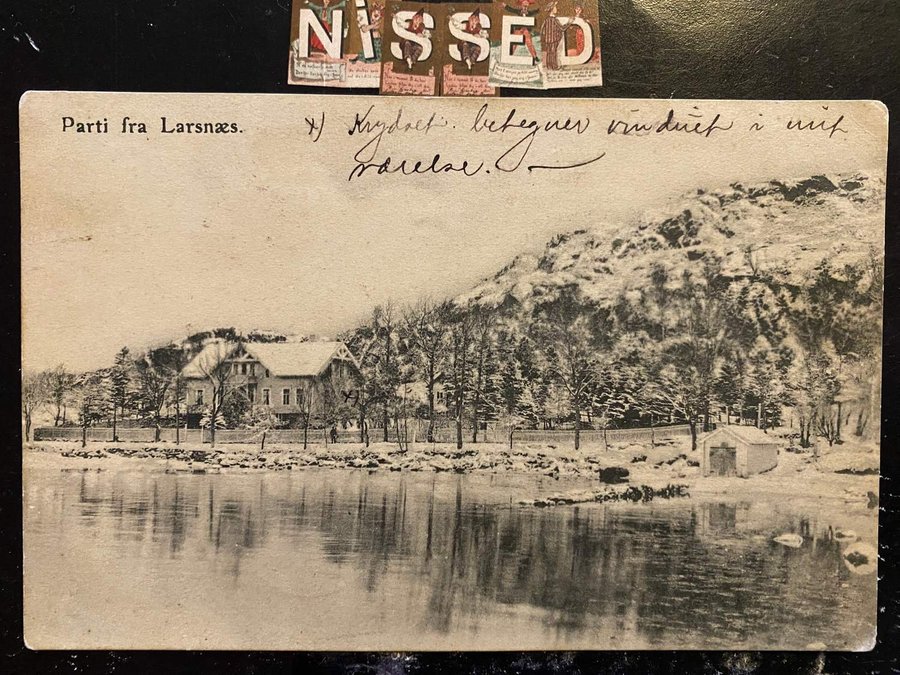 NiSSED
Parti fra Larsnæs.
x) Krydset betegner vinduet i mit
værelse.
x